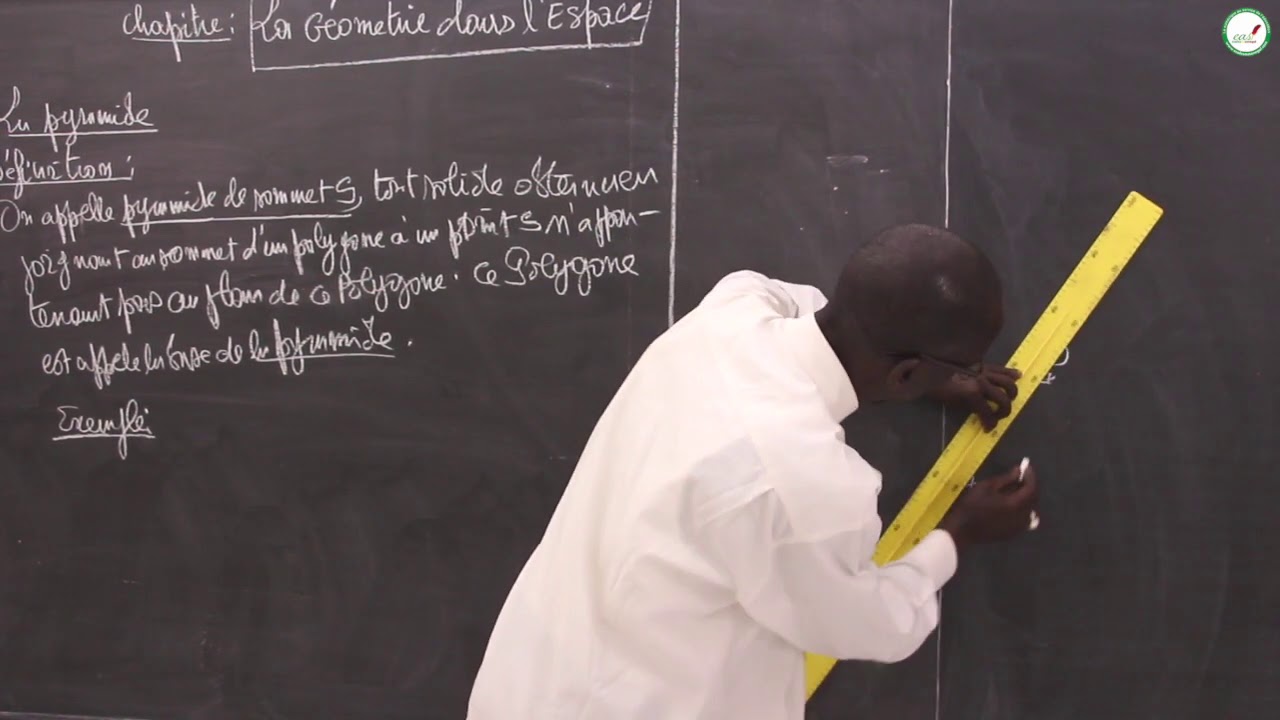 chapitre: La Géometrie dans l'Espace
La pyramide
Définition:
On appelle pyramide de sommet S, tout solide obtenu en
joignant un sommet d'un polygone à un point S n'appar-
tenant pas au plan de ce Polygone. Ce Polygone
est appelé la base de la pyramide.
Exemple:
eas